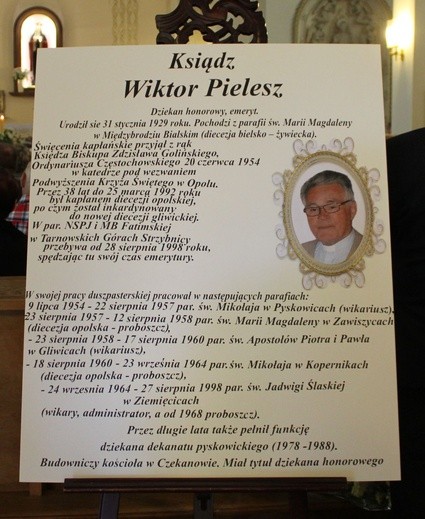 Ksiądz
Wiktor Pielesz
Dziekan honorowy, emeryt.
Urodził sie 31 stycznia 1929 roku. Pochodzi z parafii św. Marii Magdaleny
w Międzybrodziu Bialskim (diecezja bielsko – żywiecka).
Święcenia kapłańskie przyjął z rąk
Księdza Biskupa Zdzisława Golińskiego,
Ordynariusza Częstochowskiego 20 czerwca 1954
w katedrze pod wezwaniem
Podwyższenia Krzyża Świętego w Opolu.
Przez 38 lat do 25 marca 1992 roku
był kapłanem diecezji opolskiej,
po czym został inkardynowany
do nowej diecezji gliwickiej.
W par. NSPJ i MB Fatimskiej
w Tarnowskich Górach Strzybnicy
przebywa od 28 sierpnia 1998 roku,
spędzając tu swój czas emerytury.
W swojej pracy duszpasterskiej pracował w następujących parafiach:
9 lipca 1954 - 22 sierpnia 1957 par. św. Mikołaja w Pyskowicach (wikariusz),
23 sierpnia 1957 - 12 sierpnia 1958 par. św. Marii Magdaleny w Zawiszycach
(diecezja opolska - proboszcz),
- 23 sierpnia 1958 - 17 sierpnia 1960 par. św. Apostołów Piotra i Pawła
w Gliwicach (wikariusz),
- 18 sierpnia 1960 - 23 września 1964 par. św. Mikołaja w Kopernikach
(diecezja opolska - proboszcz),
- 24 września 1964 - 27 sierpnia 1998 par. św. Jadwigi Śląskiej
w Ziemięcicach
(wikary, administrator, a od 1968 proboszcz).
Przez długie lata także pełnił funkcję
dziekana dekanatu pyskowickiego (1978 -1988).
Budowniczy kościoła w Czekanowie. Miał tytuł dziekana honorowego